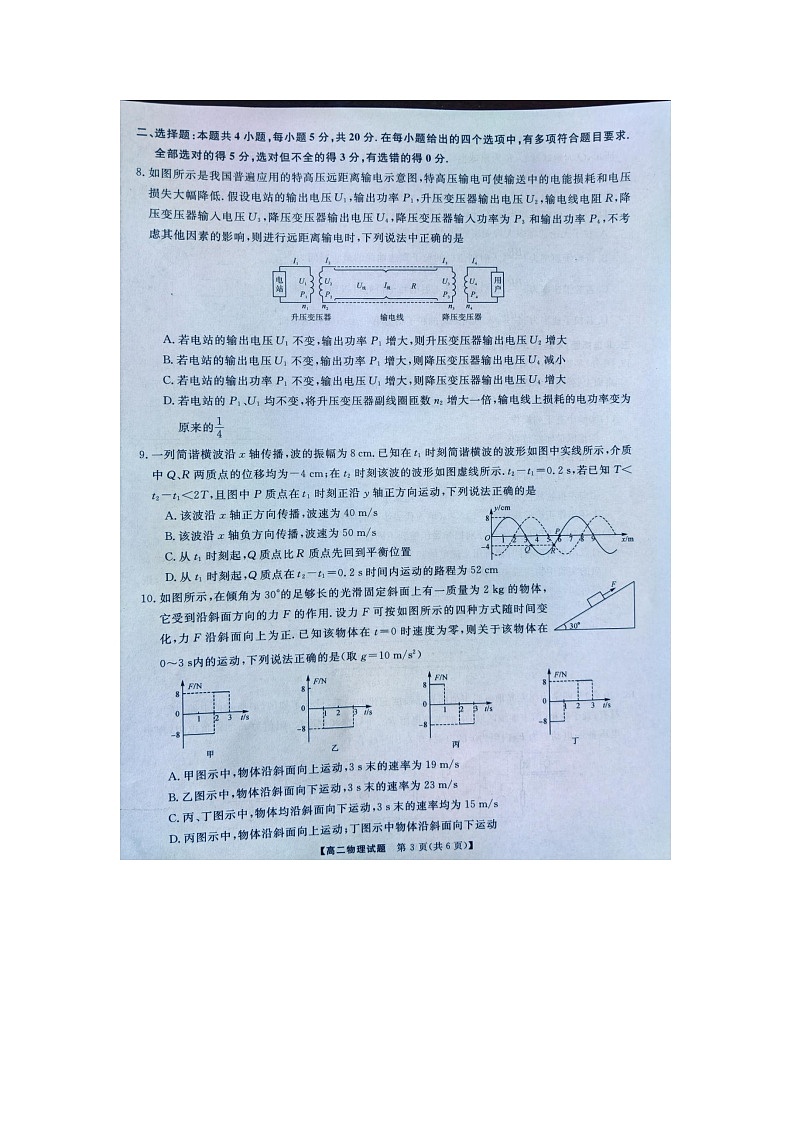 二、选择题:本题共 4 小题,每小题 5 分,共 20 分.在每小题给出的四个选项中,有多项符合题目要求.
全部选对的得 5 分,选对但不全的得 3 分,有选错的得 0 分.
8. 如图所示是我国普遍应用的特高压远距离输电示意图,特高压输电可使输送中的电能损耗和电压
损失大幅降低.假设电站的输出电压 U₁,输出功率 P₁,升压变压器输出电压 U₂,输电线电阻 R,降
压变压器输入电压 U₃,降压变压器输出电压 U₄,降压变压器输入功率为 P₃ 和输出功率 P₄,不考
虑其他因素的影响,则进行远距离输电时,下列说法中正确的是
I₁ I₂ I₃ I₄
电站 U₁ U₂ U线 I线 R U₃ U₄ 用户
P₁ P₂ P₃ P₄
n₁ n₂ n₃ n₄
升压变压器 输电线 降压变压器
A. 若电站的输出电压 U₁ 不变,输出功率 P₁ 增大,则升压变压器输出电压 U₂ 增大
B. 若电站的输出电压 U₁ 不变,输出功率 P₁ 增大,则降压变压器输出电压 U₄ 减小
C. 若电站的输出功率 P₁ 不变,输出电压 U₁ 增大,则降压变压器输出电压 U₄ 增大
D. 若电站的 P₁、U₁ 均不变,将升压变压器副线圈匝数 n₂ 增大一倍,输电线上损耗的电功率变为
原来的 1/4
9. 一列简谐横波沿 x 轴传播,波的振幅为 8 cm.已知在 t₁ 时刻简谐横波的波形如图中实线所示,介质
中 Q、R 两质点的位移均为 −4 cm;在 t₂ 时刻该波的波形如图虚线所示. t₂−t₁=0.2 s,若已知 T<
t₂−t₁<2T,且图中 P 质点在 t₁ 时刻正沿 y 轴正方向运动,下列说法正确的是
A. 该波沿 x 轴正方向传播,波速为 40 m/s
B. 该波沿 x 轴负方向传播,波速为 50 m/s
C. 从 t₁ 时刻起,Q 质点比 R 质点先回到平衡位置
D. 从 t₁ 时刻起,Q 质点在 t₂−t₁=0.2 s 时间内运动的路程为 52 cm
y/cm
8
P
O 1 2 3 4 5 6 7 8 9 x/m
−4
Q R
10. 如图所示,在倾角为 30°的足够长的光滑固定斜面上有一质量为 2 kg 的物体,
它受到沿斜面方向的力 F 的作用.设力 F 可按如图所示的四种方式随时间变
化,力 F 沿斜面向上为正.已知该物体在 t=0 时速度为零,则关于该物体在
0~3 s内的运动,下列说法正确的是(取 g=10 m/s²)
F
30°
F/N F/N F/N F/N
8 8 8 8
0 1 2 3 t/s 0 1 2 3 t/s 0 1 2 3 t/s 0 1 2 3 t/s
−8 −8 −8 −8
甲 乙 丙 丁
A. 甲图示中,物体沿斜面向上运动,3 s 末的速率为 19 m/s
B. 乙图示中,物体沿斜面向下运动,3 s 末的速率为 23 m/s
C. 丙、丁图示中,物体均沿斜面向下运动,3 s 末的速率均为 15 m/s
D. 丙图示中,物体沿斜面向上运动;丁图示中物体沿斜面向下运动
【高二物理试题 第 3 页(共 6 页)】